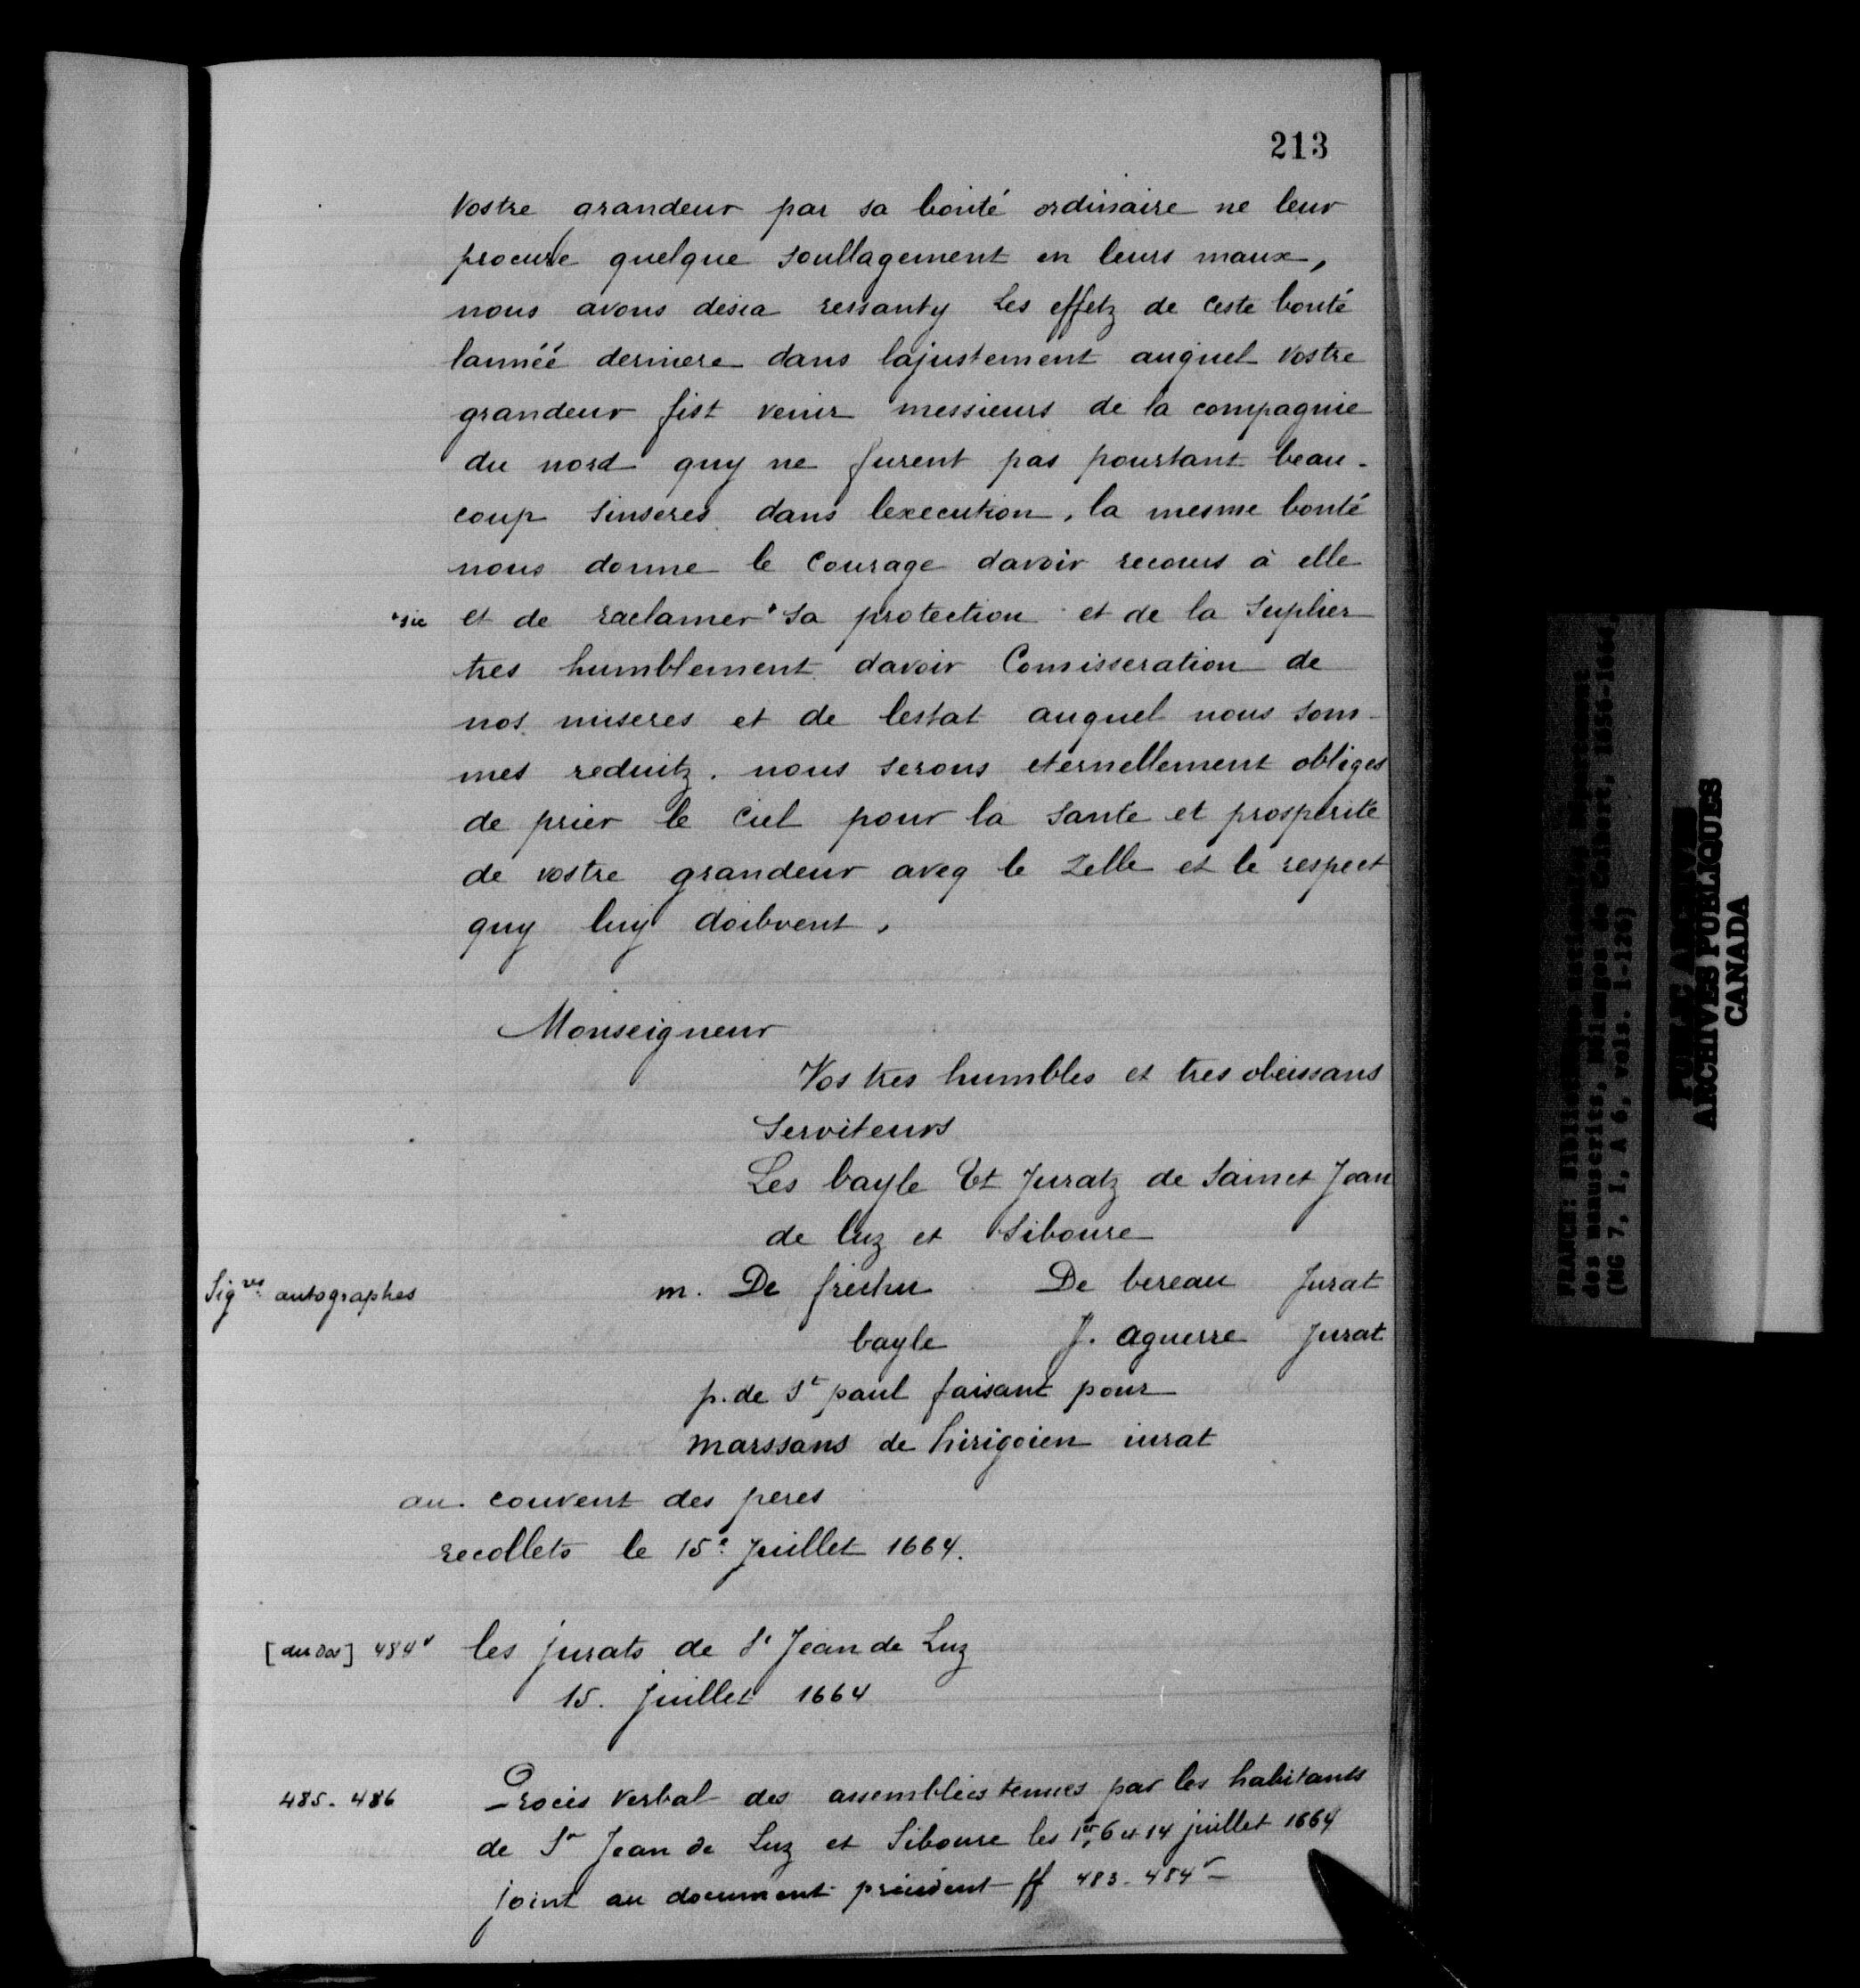 213
Vostre grandeur par sa bonté ordinaire ne leur
procure quelque soullagement en leurs maux,
nous avons desia ressanty Les effetz de ceste bonté
lannéé derniere dans lajustement auquel vostre
grandeur fist venir messieurs de la compagnie
du nord quy ne furent pas pourtant beau-
coup sinseres dans lexecution, la mesme bonté
nous donne le Courage davoir recours à elle
*sic et de raclamer* Sa protection et de la Suplier
tres humblement davoir Comisseration de
nos miseres et de lestat auquel nous som-
mes reduitz. nous serons eternellement obliges
de prier le Ciel pour la Santé et prosperité
de vostre grandeur aveq le Zelle et le respect
quy luy doibvent,
Monseigneur
Vos tres humbles et tres obeissans
Serviteurs
Les bayle Et Juratz de Sainct Jean
de luz et Siboure
Sigres autographes m. De De bereau Jurat
bayle J. aguerre Jurat
p. de St paul faisant pour
marssans de hirigoien iurat
au couvent des peres
recollets le 15e Juillet 1664.
[au dos] 484v les jurats de St Jean de Luz
15. juillet 1664
485-486 Procès verbal des assemblées tenues par les habitants
de St Jean de Luz et Siboure les 1er, 6 et 14 juillet 1664
joint au document précédent ff 483-484v
des manuscrits, Mélanges de Colbert, 1656-1664
(MG 7, I, A 6, vols. 1-126)
ARCHIVES PUBLIQUES
CANADA